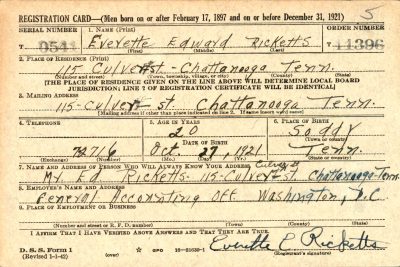 REGISTRATION CARD—(Men born on or after February 17, 1897 and on or before December 31, 1921) 5
SERIAL NUMBER 1. NAME (Print) ORDER NUMBER
T 0541 Everette Edward Ricketts T 11396
(First) (Middle) (Last)
2. PLACE OF RESIDENCE (Print)
115 Culver st. - Chattanooga Tenn.
(Number and street) (Town, township, village, or city) (County) (State)
[THE PLACE OF RESIDENCE GIVEN ON THE LINE ABOVE WILL DETERMINE LOCAL BOARD
JURISDICTION; LINE 2 OF REGISTRATION CERTIFICATE WILL BE IDENTICAL]
3. MAILING ADDRESS
115 - culver st. Chattanooga Tenn.
[Mailing address if other than place indicated on line 2. If same insert word same]
4. TELEPHONE 5. AGE IN YEARS 6. PLACE OF BIRTH
20 Soddy
DATE OF BIRTH (Town or county)
Oct. 27 1921 Tenn.
(Exchange) (Number) (Mo.) (Day) (Yr.) (State or country)
7. NAME AND ADDRESS OF PERSON WHO WILL ALWAYS KNOW YOUR ADDRESS
Mr. Ed Ricketts - 115 - Culver st. Chattanooga Tenn.
8. EMPLOYER'S NAME AND ADDRESS
General Accounting Off. Washington, D.C.
9. PLACE OF EMPLOYMENT OR BUSINESS
(Number and street or R. F. D. number) (Town) (County) (State)
I AFFIRM THAT I HAVE VERIFIED ABOVE ANSWERS AND THAT THEY ARE TRUE.
D. S. S. Form 1 (over) GPO 16—21630-1 Everette E Ricketts
(Revised 1-1-42) (Registrant's signature)